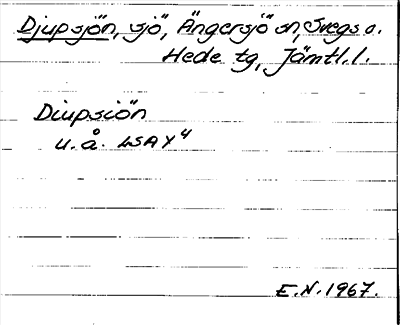 Djupsjön, sjö, Ängersjö sn, Svegs o.
Hede tg, Jämtl. l.
Diupsiön
u. å. LSA Y4
E.N. 1967.